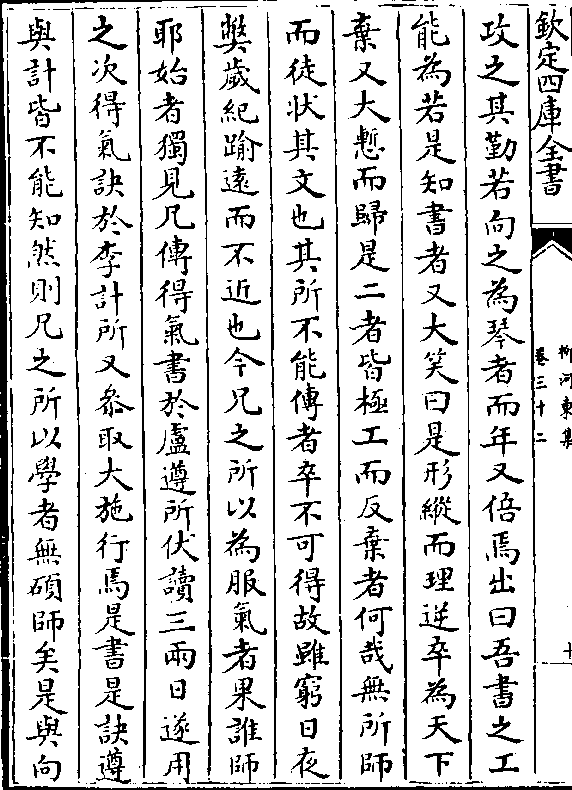 欽定四庫全書
柳河東集
卷三十二
十
攻之其勤若向之為琴者而年又倍焉出曰吾書之工
能為若是知書者又大笑曰是形縱而理逆卒為天下
棄又大慙而歸是二者皆極工而反棄者何哉無所師
而徒狀其文也其所不能傳者卒不可得故雖窮日夜
弊歲紀踰遠而不近也今兄之所以為服氣者果誰師
耶始者獨見兄傳得氣書於盧遵所伏讀三兩日遂用
之次得氣訣於李計所又叅取大施行焉是書是訣遵
與計皆不能知然則兄之所以學者無碩師矣是與向